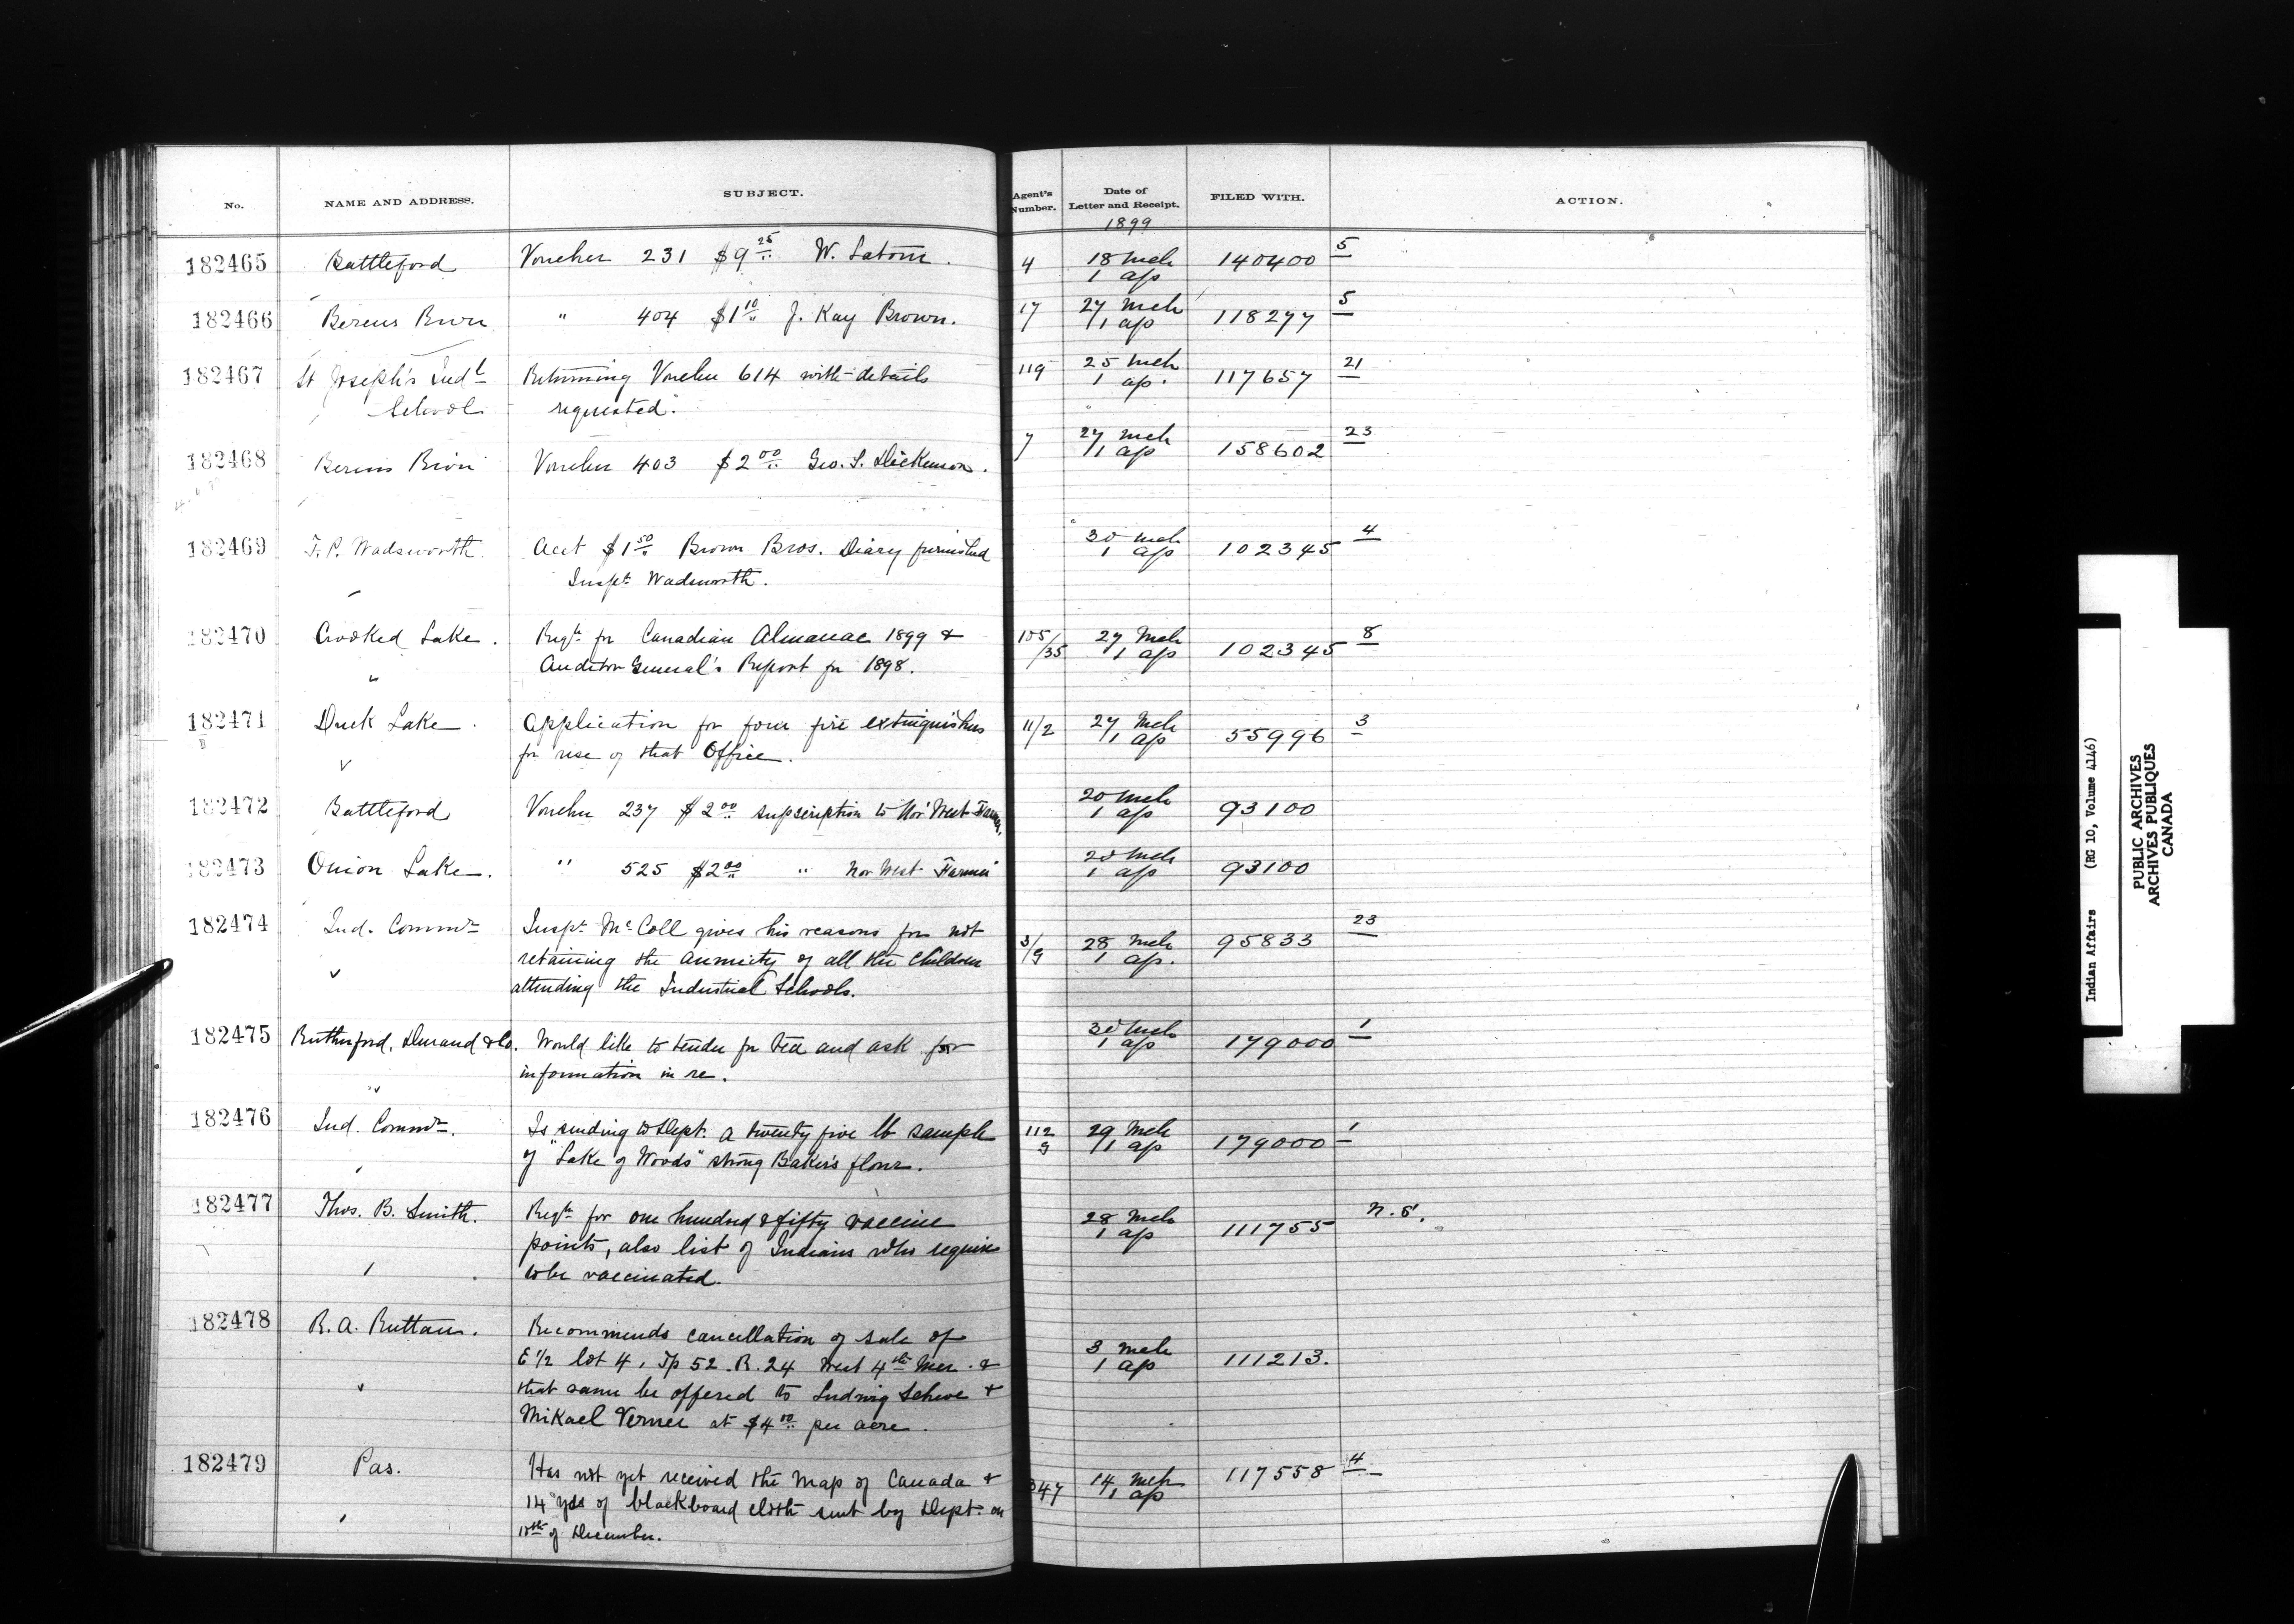 No. NAME AND ADDRESS. SUBJECT. Agent's Number. Date of Letter and Receipt. FILED WITH. ACTION.
1899
182465 Battleford Voucher 231 $9 25 W. Latour. 4 18 Mch 140400 5
1 ap
182466 Berens River " 404 $1 10 J. Kay Brown. 17 27 Mch 118277 5
1 ap
182467 St Joseph's Indl Returning Voucher 614 with details 119 25 Mch 117657 21
School requested. 1 ap.
182468 Berens River Voucher 403 $2 00 Geo. S. Dickenson. 7 27 Mch 158602 23
1 ap
182469 T. P. Wadsworth. Acct $1 50 Brown Bros. Diary furnished 30 Mch 102345 4
Inspr. Wadsworth. 1 ap
182470 Crooked Lake. Reqn for Canadian Almanac 1899 & 105/35 27 Mch 102345 8
" Auditor General's Report for 1898. 1 ap
182471 Duck Lake. Application for four fire extinguishers 11/2 27 Mch 55996 3
for use of that Office. 1 ap
182472 Battleford Voucher 237 $2 00 supscription to Nor' West Farmer. 20 Mch 93100
1 ap
182473 Onion Lake. " 525 $2 00 " Nor West Farmer 20 Mch 93100
1 ap
182474 Ind. Commr Inspr. McColl gives his reasons for not 3/9 28 Mch 95833 23
retaining the annuity of all the children 1 ap.
attending the Industrial Schools.
182475 Rutherford, Durand & Co. Would like to tender for Tea and ask for 30 Mch 179000 1
information in re. 1 ap
182476 Ind. Commr. Is sending to Dept. a twenty five lb sample 112/9 29 Mch 179000 1
of "Lake of Woods" strong Baker's flour. 1 ap
182477 Thos. B. Smith. Reqn for one hundred & fifty vaccine 28 Mch 111755 n.s.
points, also list of Indians who require 1 ap
to be vaccinated.
182478 R. A. Ruttan. Recommends cancellation of sale of 3 Mch 111213.
E 1/2 lot 4, Tp 52. R. 24 West 4th Mer. & 1 ap
that same be offered to Ludwig Schwe &
Mikael Verner at $4 00 per acre.
182479 Pas. Has not yet received the map of Canada & 347 14 Mch 117558 4
14 yds of blackboard cloth sent by Dept. on 1 ap
of December.
Indian Affairs (RG 10, Volume 4146)
PUBLIC ARCHIVES
ARCHIVES PUBLIQUES
CANADA